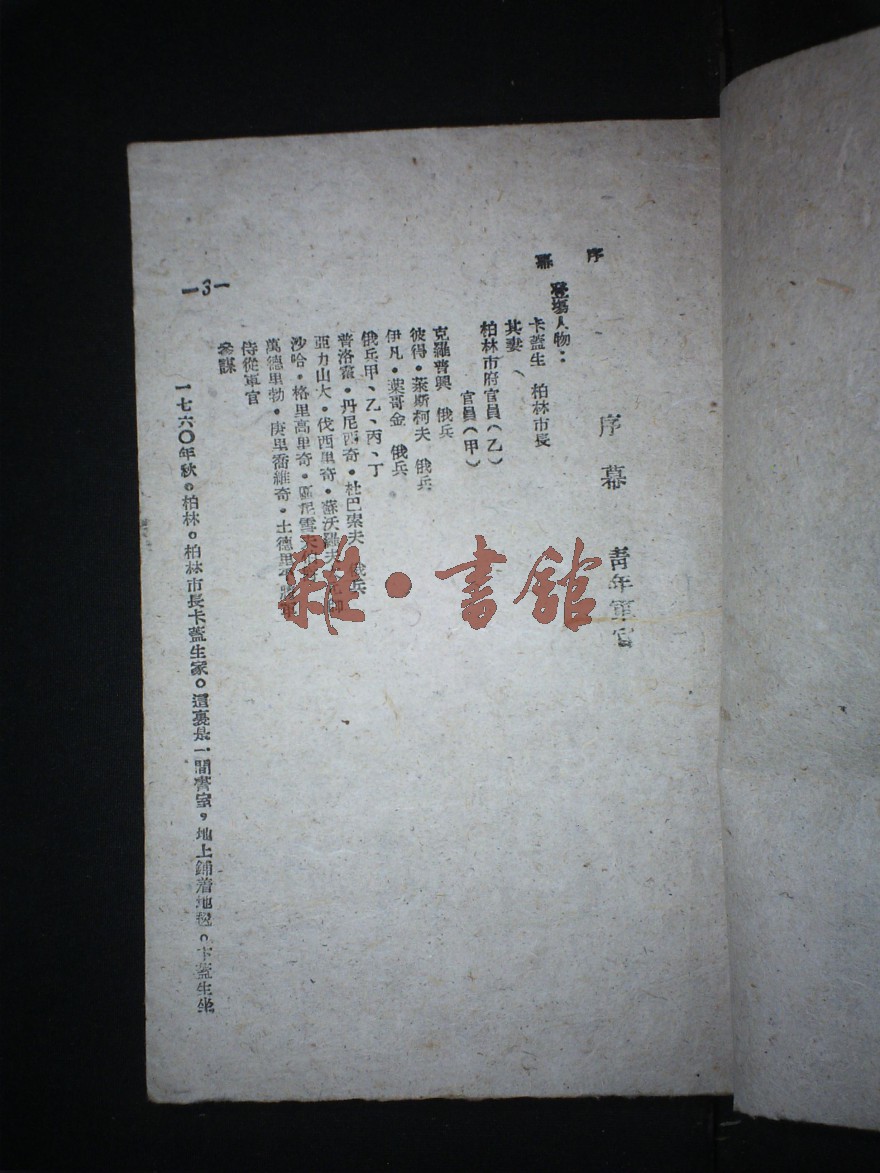 序幕
序幕 青年軍官
登場人物：
卡蓋生 柏林市長
其妻
柏林市府官員（乙）
官員（甲）
克羅普興 俄兵
彼得・萊斯柯夫 俄兵
伊凡・葉哥金 俄兵
俄兵甲、乙、丙、丁
普洛霍・丹尼西奇・杜巴索夫 俄兵
亞力山大・伐西里奇・蘇沃羅夫
沙哈・格里高里奇
萬德里勃・庚里喬維奇・土德里
侍從軍官
參謀
一七六〇年秋。柏林。柏林市長卡蓋生家。這裏是一間書室，地上鋪着地毯。卡蓋生坐
—3—
雜・書館